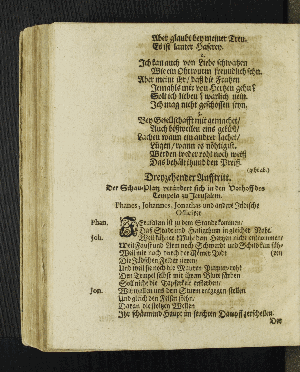 Aber glaubt bey meiner Treu.
Es ist lauter
2.
Ich kan auch von Liebe schwatzen
Wie ein Ohrwurm freundlich sehn.
Aber meint ihr / daß die Frauen
Jemahls mir von Hertzen
Solt ich lieben? warlich nein.
Ich mag nicht geschossen seyn.
3.
Bey Gesellschafft mit
Auch bißweilen eins
Lachen wann ein andrer lachet /
Lügen / wann es nöhtig ist.
Werden weder roht noch weiß
Das behält den Preiß.
(geht ab.)
Dreyzehender Aufftritt.
Der Schau-Platz verändert sich in den Vorhoff des
Tempels zu Jerusalem.
Phanes, Johannes, Jonathas und andere Jüdische
Officirer
Phan. Jerusalem ist in dem Stande kommen /
Das Stadt und Heiligthum in gleicher Noht.
Joh. Weil kühner Muht den Hertzen nicht entnommen
Weil Faust und Arm noch Schwerdt und Schild kan führ
Weil mir noch durch der Römer Todt (ren
Die Jüdischen Felder zieren /
Und weil sie noch die Mauren
Der Tempel selbst mit ihrem Blut färben
Soll nicht die Tapferkeit ersterben /
Jon. Wir wollen uns dem Sturm entgegen stellen
Und gleich den Felsen stehn /
Daran die stoltzen Wellen
Ihr schäumend Haupt im Dampff zerschellen.
Der